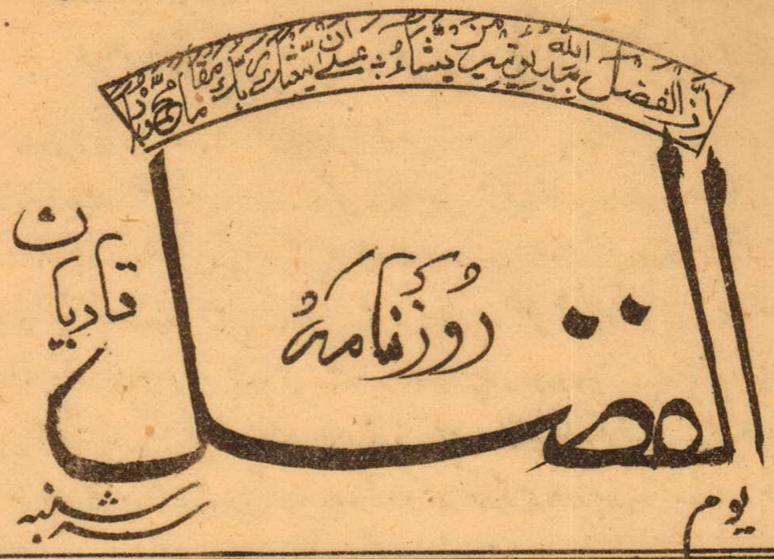 ان الفضل بيد الله يؤتيه من يشاء عسى ان يبعثك ربك مقاما محمودا
روزنامہ
الفضل
قادیان
یوم
سہ شنبہ